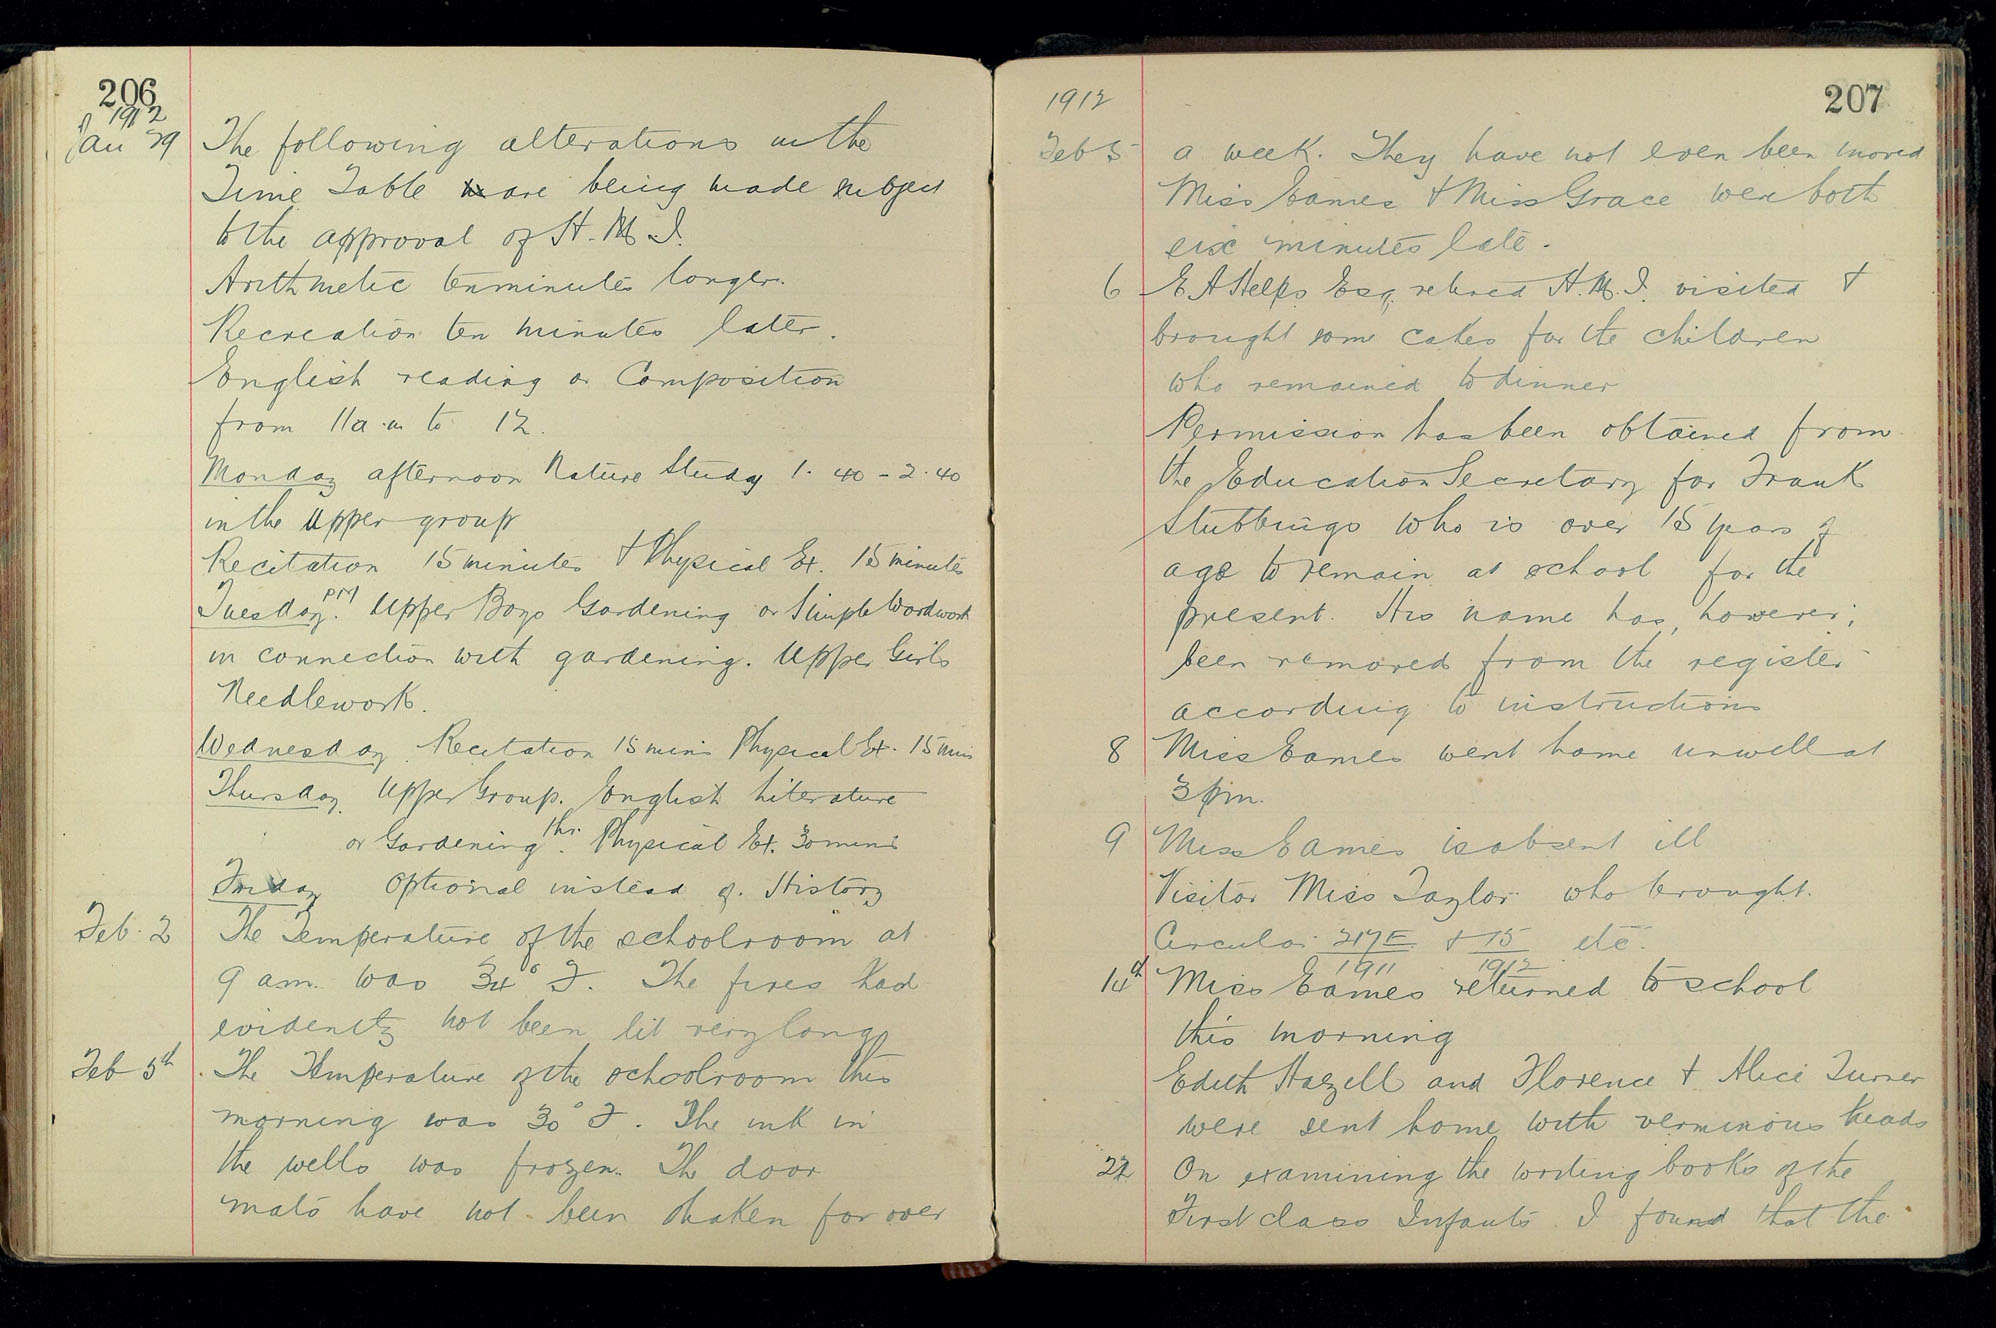 206
1912
Jan 29 The following alterations in the
Time Table are being made subject
to the approval of H.M.I.
Arithmetic ten minutes longer.
Recreation ten minutes later.
English reading or Composition
from 11 a.m to 12.
Monday afternoon Nature Study 1.40 - 2.40
in the Upper group
Recitation 15 minutes + Physical Ex. 15 minutes
Tuesday PM. Upper Boys Gardening or Simple Woodwork
in connection with gardening. Upper Girls
Needlework.
Wednesday. Recitation 15 mins Physical Ex. 15 mins
Thursday. Upper Group. English Literature
or Gardening 1hr. Physical Ex. 30 mins
Friday Optional instead of History
Feb. 2 The Temperature of the schoolroom at
9 am. was 34° F. The fires had
evidently not been lit very long
Feb 5th. The Temperature of the schoolroom this
morning was 30° F. The ink in
the wells was frozen. The door
mats have not been shaken for over
207
1912
Feb 5 a week. They have not even been moved
Miss Eames + Miss Grace were both
six minutes late.
6 E A Helps Esq, retired H.M.I. visited +
brought some cakes for the children
who remained to dinner
Permission has been obtained from
the Education Secretary for Frank
Stubbings who is over 15 years of
age to remain at school for the
present. His name has, however,
been removed from the register
according to instructions
8 Miss Eames went home unwell at
3 pm.
9 Miss Eames is absent ill
Visitor Miss Taylor who brought.
Circular 217E + 15 etc.
1911 1912
14th Miss Eames returned to school
this morning
Edith Hazell and Florence + Alice Turner
were sent home with verminous heads
22 On examining the writing books of the
First class Infants I found that the